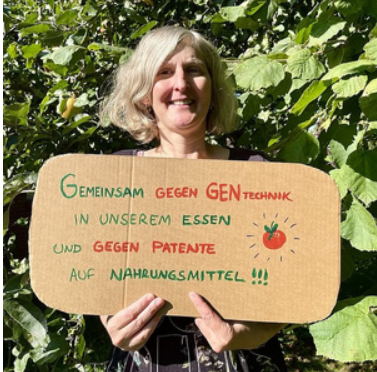 GEMEINSAM GEGEN GENTECHNIK
IN UNSEREM ESSEN
UND GEGEN PATENTE
AUF NAHRUNGSMITTEL!!!